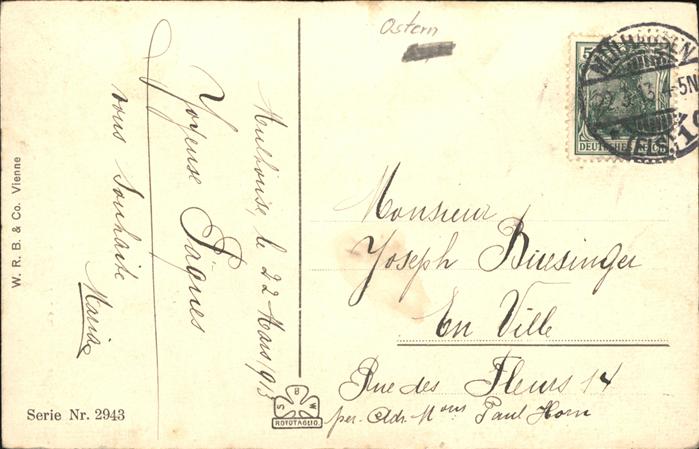 Ostern
Mulhouse, le 22 Mars 1913
Joyeuse Pâques
vous souhaite
Maria
W. R. B. & Co. Vienne
Serie Nr. 2943
S B W
ROTOTAGLIO.
5
DEUTSCHES REICH
MÜLHAUSEN
22.3.13.4-5N
(ELS.)
Monsieur
Joseph Biesinger
En Ville
Rue des Fleurs 14
per. Adr. Mons Paul Horn